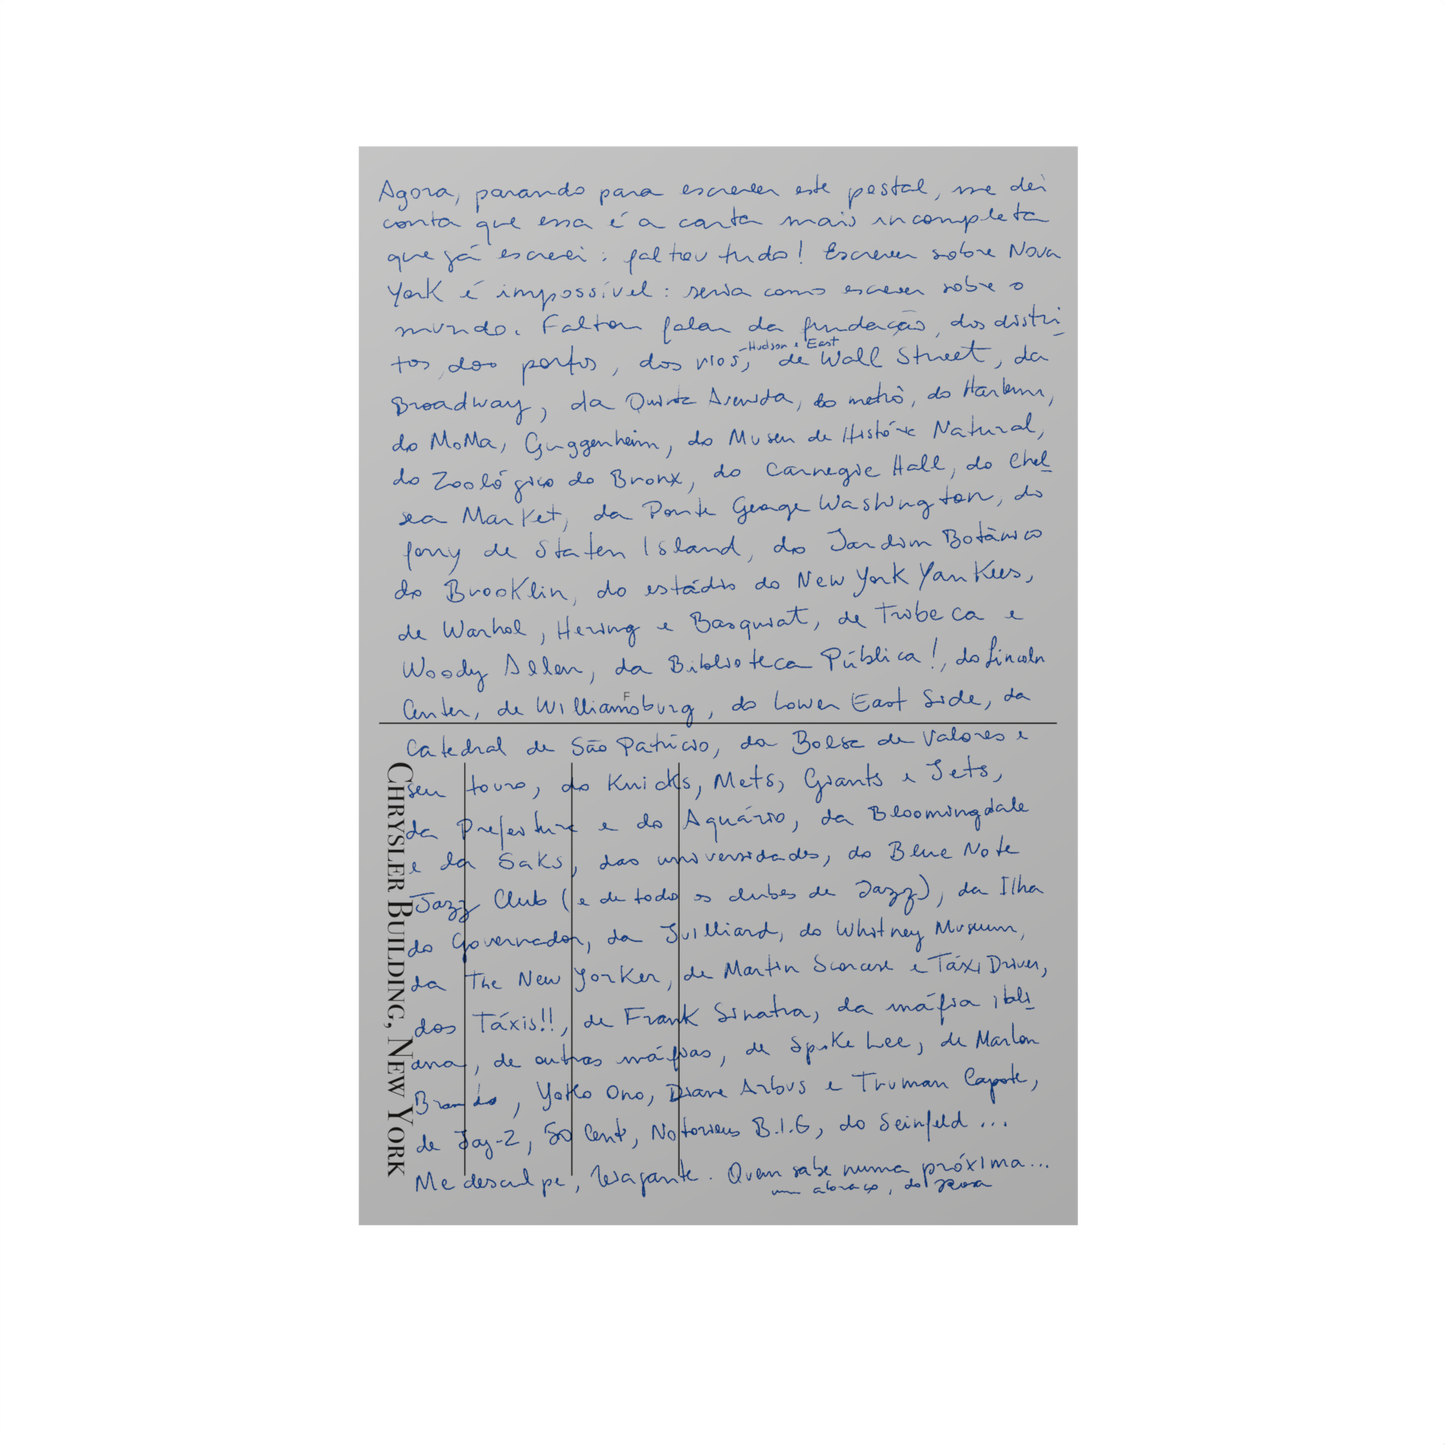 Agora, parando para escrever este postal, me dei
conta que essa é a carta mais incompleta
que já escrevi: faltou tudo! Escrever sobre Nova
York é impossível: seria como escrever sobre o
mundo. Faltou falar da fundação, dos distri-
tos, dos portos, dos rios, - Hudson e East de Wall Street, da
Broadway, da Quinta Avenida, do metrô, do Harlem,
do MoMa, Guggenheim, do Museu de História Natural,
do Zoológico do Bronx, do Carnegie Hall, do Chel-
sea Market, da Ponte George Washington, do
ferry de Staten Island, do Jardim Botânico
do Brooklin, do estádio do New York Yankees,
de Warhol, Hering e Basquiat, de Tribeca e
Woody Allen, da Biblioteca Pública!, do Lincoln
Center, de Williamsburg, do Lower East Side, da
F
Catedral de São Patrício, da Bolsa de Valores e
seu touro, do Knicks, Mets, Giants e Jets,
da Prefeitura e do Aquário, da Bloomingdale
e da Saks, das universidades, do Blue Note
Jazz Club (e de todo os clubes de Jazz), da Ilha
do Governador, da Juilliard, do Whitney Museum,
da The New Yorker, de Martin Scorcese e Táxi Driver,
dos Táxis!!, de Frank Sinatra, da máfia itali-
ana, de outras máfias, de Spike Lee, de Marlon
Brando, Yoko Ono, Diane Arbus e Truman Capote,
de Jay-Z, 50 Cent, Notorious B.I.G, do Seinfeld ...
Me desculpe, . Quem sabe numa próxima...
um abraço, do
CHRYSLER BUILDING, NEW YORK